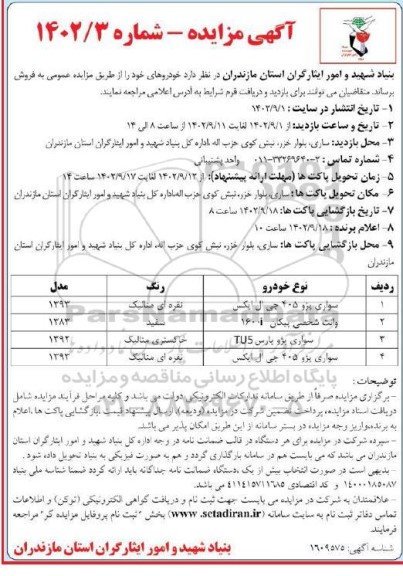 آگهی مزایده – شماره ۱۴۰۲/۳
بنیاد شهید و امور ایثارگران استان مازندران در نظر دارد خودروهای خود را از طریق مزایده عمومی به فروش
برساند. متقاضیان می توانند برای بازدید و دریافت فرم شرایط به آدرس اعلامی مراجعه نمایند.
۱- تاریخ انتشار در سایت : ۱۴۰۲/۹/۱
۲- تاریخ و ساعت بازدید: از ۱۴۰۲/۹/۱ لغایت ۱۴۰۲/۹/۱۱ از ساعت ۸ الی ۱۴
۳- محل بازدید: ساری، بلوار خزر، نبش کوی حزب اله اداره کل بنیاد شهید و امور ایثارگران استان مازندران
۴- شماره تماس : ۲-۰۱۱-۳۳۲۶۹۶۴۰ واحد پشتیبانی
۵- زمان تحویل پاکت ها (مهلت ارائه پیشنهاد): از ۱۴۰۲/۹/۱۲ لغایت ۱۴۰۲/۹/۱۷ ساعت ۱۴
۶- مکان تحویل پاکت ها: ساری، بلوار خزر، نبش کوی حزب اله، اداره کل بنیاد شهید و امور ایثارگران استان مازندران
۷- تاریخ بازگشایی پاکت ها: ۱۴۰۲/۹/۱۸ ساعت ۸
۸- اعلام برنده : ۱۴۰۲/۹/۱۸ ساعت ۱۰
۹- محل بازگشایی پاکت ها: ساری، بلوار خزر، نبش کوی حزب اله، اداره کل بنیاد شهید و امور ایثارگران استان
مازندران
ردیف نوع خودرو رنگ مدل
۱ سواری پژو ۴۰۵ جی ال ایکس نقره ای متالیک ۱۳۹۳
۲ وانت شخصی پیکان ۱۶۰۰i سفید ۱۳۸۳
۳ سواری پژو پارس TU5 خاکستری متالیک ۱۳۹۲
۴ سواری پژو ۴۰۵ جی ال ایکس نقره ای متالیک ۱۳۹۲
پایگاه اطلاع رسانی مناقصه و مزایده
توضیحات:
- برگزاری مزایده صرفاً از طریق سامانه تدارکات الکترونیکی دولت می باشد و کلیه مراحل فرآیند مزایده شامل
دریافت اسناد مزایده، پرداخت تضمین شرکت در مزایده (ودیعه)، ارسال پیشنهاد قیمت، بازگشایی پاکت ها، اعلام
به برنده، واریز وجه مزایده در بستر سامانه از این طریق امکان پذیر می باشد.
- سپرده شرکت در مزایده برای هر دستگاه در قالب ضمانت نامه در وجه اداره کل بنیاد شهید و امور ایثارگران استان
مازندران می باشد که می بایست هم در سامانه بارگذاری گردد و هم به صورت فیزیکی به بنیاد تحویل داده شود.
- بدیهی است در صورت انتخاب بیش از یک دستگاه ضمانت نامه جداگانه باید ارائه گردد ضمنا شناسه ملی بنیاد
۱۴۰۰۰۱۸۵۰۸۷ و کد اقتصادی ۴۱۱۴۱۵۷۱۱۶۸۵ می باشد.
- علاقمندان به شرکت در مزایده می بایست جهت ثبت نام و دریافت گواهی الکترونیکی (توکن) و اطلاعات
تماس دفاتر ثبت نام به سایت سامانه (www.setadiran.ir) بخش "ثبت نام پروفایل مزایده گر" مراجعه
فرمایند.
شناسه آگهی: ۱۶۰۹۵۷۵ بنیاد شهید و امور ایثارگران استان مازندران